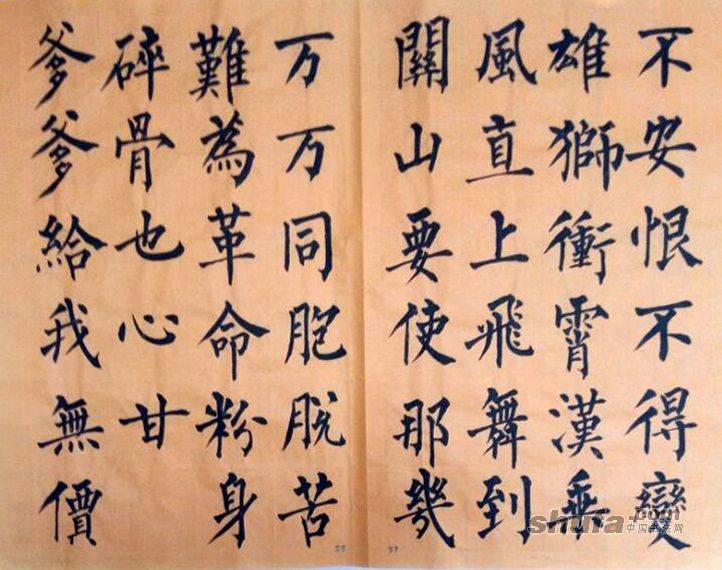 不安恨不得變
雄獅衝霄漢乘
風直上飛舞到
關山要使那幾
万万同胞脱苦
難為革命粉身
碎骨也心甘
爹爹給我無價
shufa.com
中国书法网